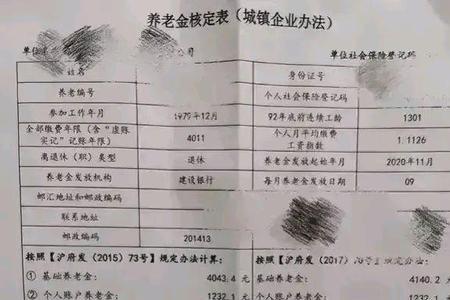 养老金核定表（城镇企业办法）
单位 公司 单位社会保险登记码
姓名 身份证号
养老编号 个人社会保险登记码
参加工作年月 1979年12月 92年底前连续工龄 1301
全部缴费年限（含“虚账实记”记账年限） 4011 个人月平均缴费工资指数 1.1126
离退休（职）类型 退休 养老金发放起始年月 2020年11月
养老金发放机构 建设银行 每月养老金发放日期 09
邮汇地址和邮政编码
联系地址
邮政编码 201413
按照【沪府发（2015）73号】规定办法计算： 按照【沪府发（2017）70号】规定办法：
① 基础养老金： 4043.4 元 ① 基础养老金： 4140.2 元
② 个人账户养老金： 1232.1 元 ② 个人账户养老金： 1232.1 元